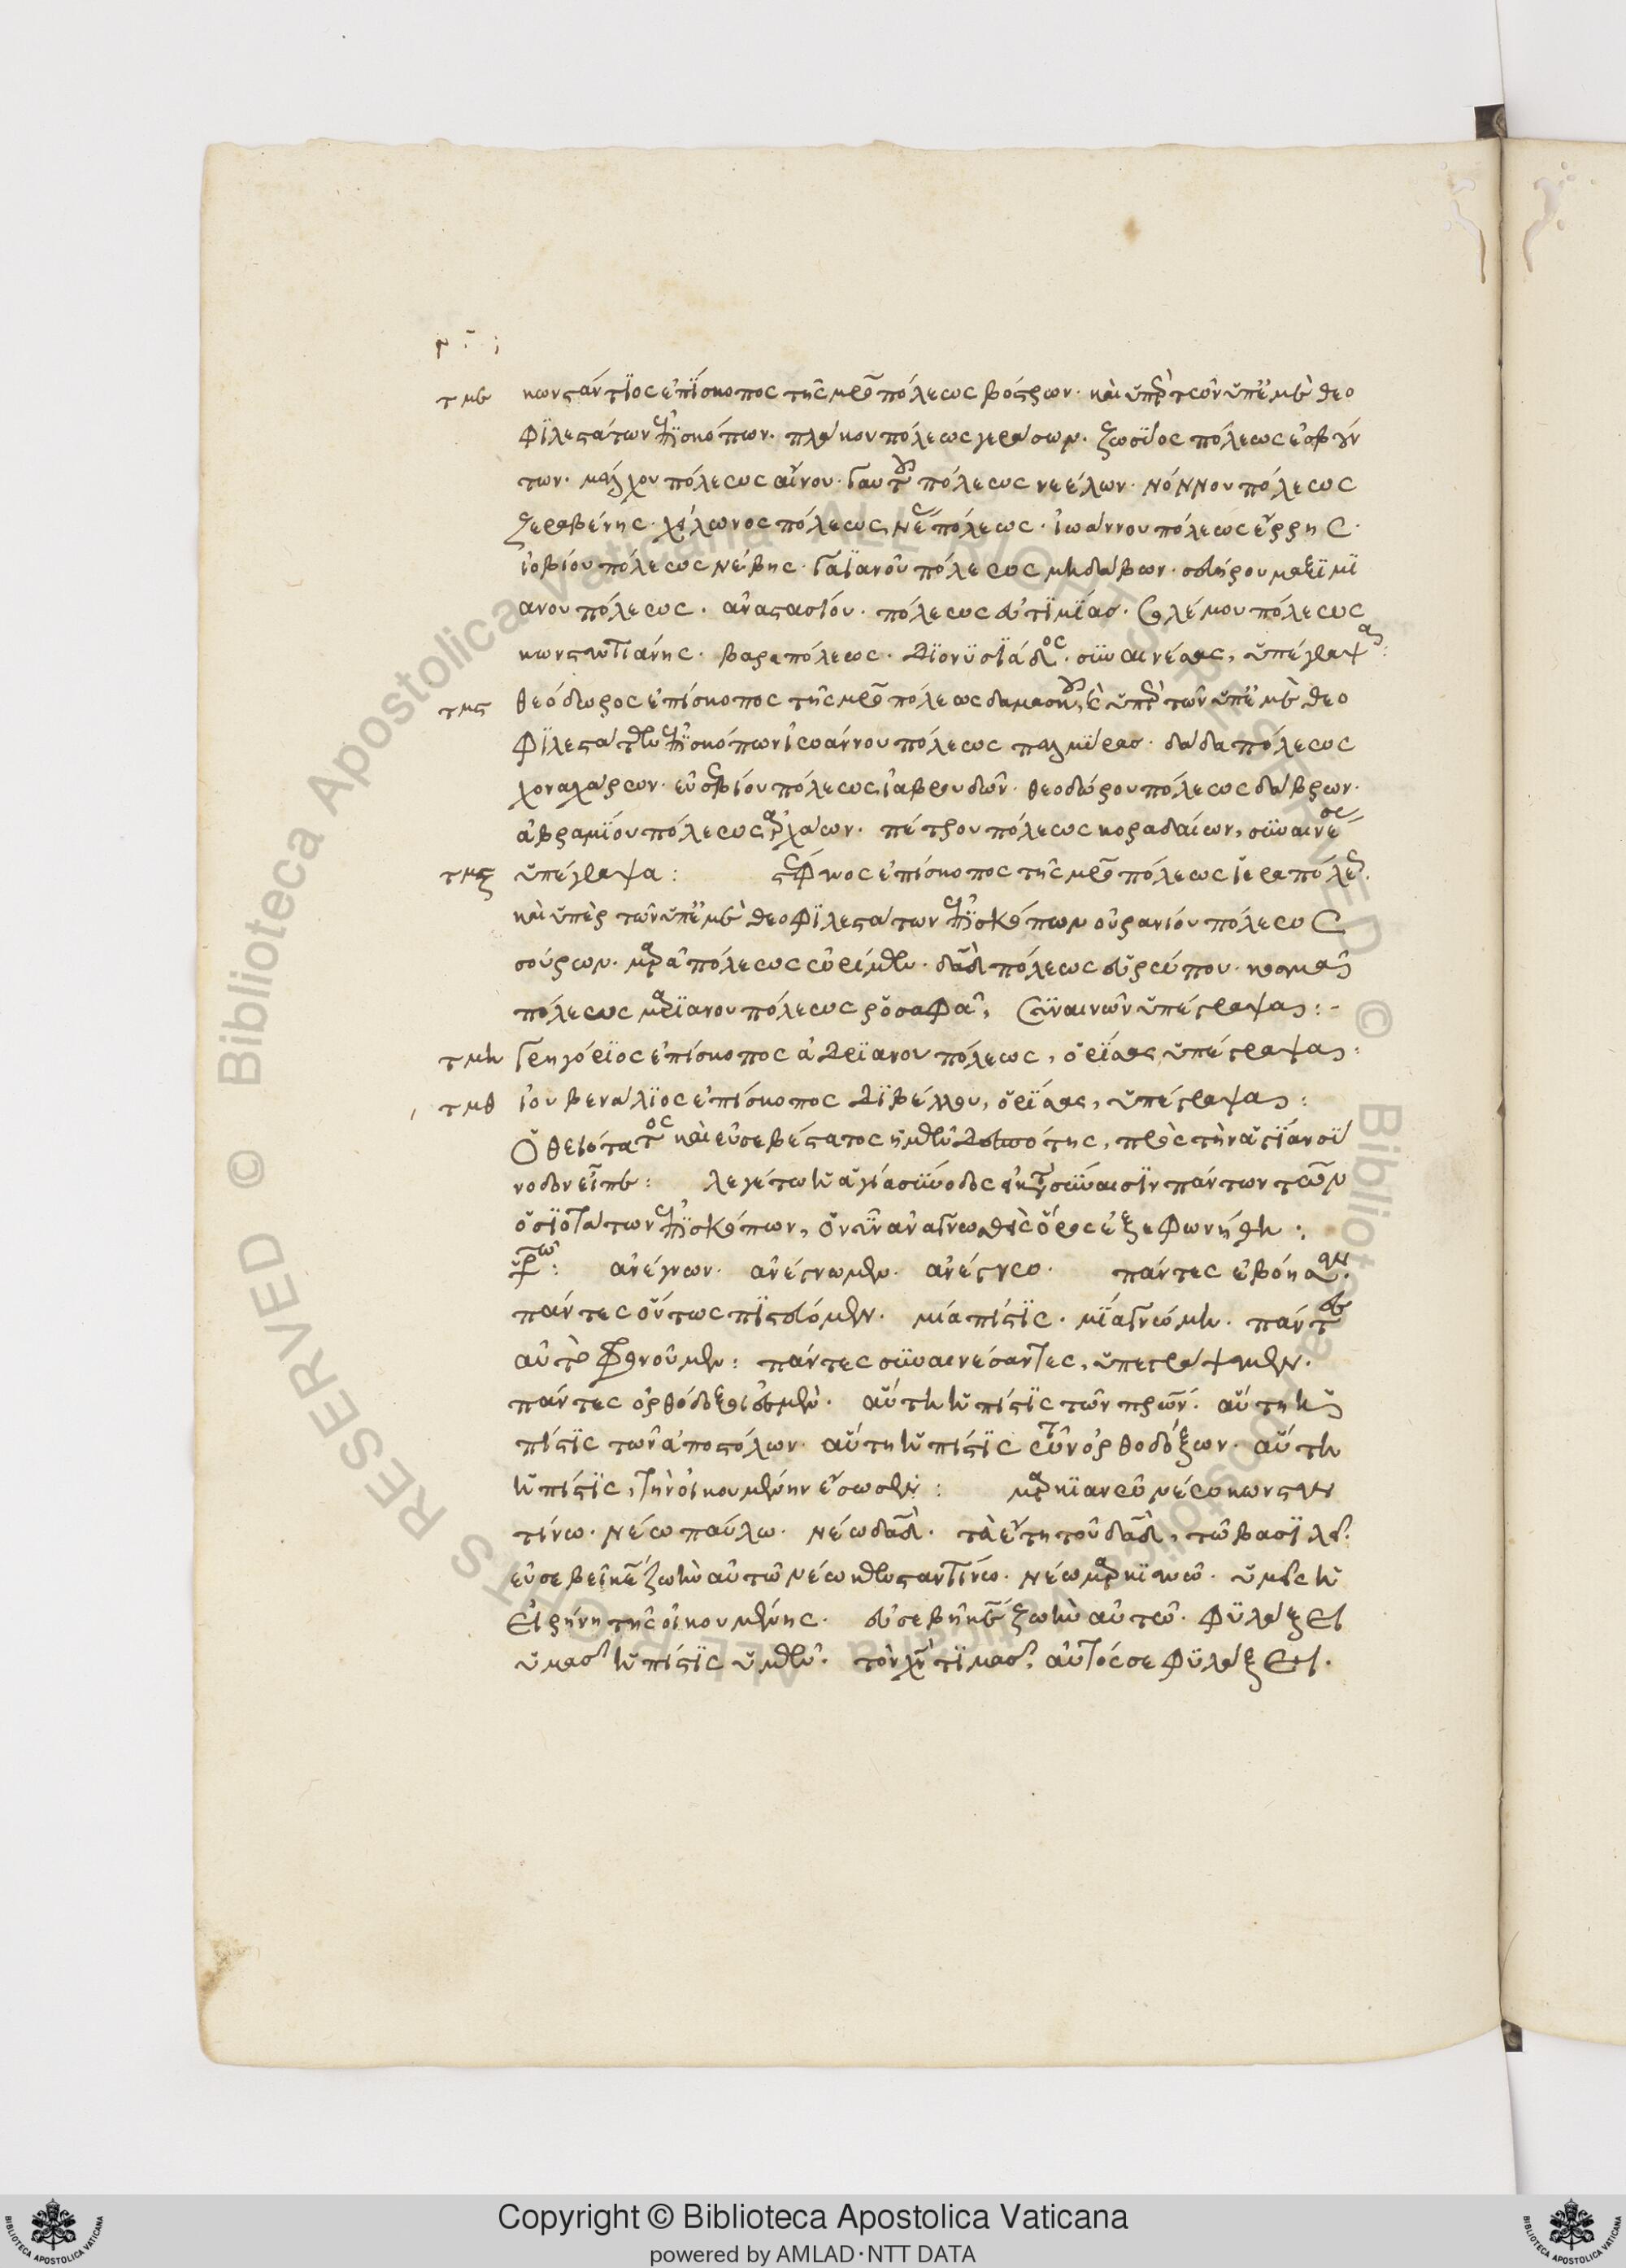 τμε κωνσταντῖος ἐπίσκοπος τῆς μρο πόλεως βόστρων. καὶ ὑπὲρ τῶν ὑπ' ἐμὲ θεο
φιλεστάτων ἐπισκόπων. πλάκου πόλεως γεράσων. ζωσίος πόλεως ἐσβούν
των. μάλχου πόλεως αἴνου. γαύτου πόλεως νεείλων. νόννου πόλεως
ζεραβένης. χίλωνος πόλεως νε πόλεως. ἰωάννου πόλεως ἔρρης.
ἰοβίου πόλεως νέβης. γαϊανοῦ πόλεως μηδάβων. σευήρου μαξιμι
ανου πόλεως. ἀναστασίου. πόλεως εὐτιμίας. σολέμου πόλεως
κωνσταντιανης. βαρα πόλεως. διονυσιάδος. συναινέσας, ὑπέγραψα:
τμϛ θεόδωρος ἐπίσκοπος τῆς μρο πόλεως δαμασκοῦ, καὶ ὑπὲρ τῶν ὑπ' ἐμὲ θεο
φιλεστάτων ἐπισκόπων ἰωάννου πόλεως παλμίρας. δάδα πόλεως
χοναχάρων. εὐσεβίου πόλεως ἰαβρουδῶν. θεοδώρου πόλεως δάβρων.
ἀβραμίου πόλεως ἀρλάων. πέτρου πόλεως κοραδαίων, συναινέσας
τμζ ὑπέγραψα: στέφανος ἐπίσκοπος τῆς μρο πόλεως ἱεραπόλεως.
καὶ ὑπὲρ τῶν ὑπ' ἐμὲ θεοφιλεστάτων ἐπισκόπων οὐρανίου πόλεως
σούρων. μαρᾶ πόλεως εὐρίμων. δαδ πόλεως εὐρώπου. κοσμᾶ
πόλεως μαριανου πόλεως ῥοσαφᾶ, συναινῶν ὑπέγραψα:-
τμη γρηγόριος ἐπίσκοπος ἀδριανου πόλεως, ὁρίσας ὑπέγραψα:
τμθ ἰουβενάλιος ἐπίσκοπος διβέλλου, ὁρίσας, ὑπέγραψα:
Ὁ θειότατος καὶ εὐσεβέστατος ἡμῶν δεσπότης, πρὸς τὴν ἁγίαν σύ
νοδον εἶπεν: λεγέτω ἡ ἁγία σύνοδος εἰ κατὰ συναίσιν πάντων τῶν
ὁσιοτάτων ἐπισκόπων, ὁ νῦν ἀναγνωσθεὶς ὅρος ἐξεφωνήθη:
ἀνέγνων. ἀνέγνωμεν. ἀνέγνω. πάντες ἐβόησαν.
πάντες οὕτως πιστεύομεν. μία πίστις. μία γνώμη. πάντες
αὐτὸ φρονοῦμεν: πάντες συναινέσαντες, ὑπεγράψαμεν.
πάντες ὀρθόδοξοι ἐσμέν. αὕτη ἡ πίστις τῶν πρων. αὕτη ἡ
πίστις τῶν ἀποστόλων. αὕτη ἡ πίστις τῶν ὀρθοδόξων. αὕτη
ἡ πίστις, τὴν οἰκουμένην ἔσωσεν: μαρκιανῶ νέω κωνσταν
τίνω. νέω παύλω. νέω δαδ. τὰ ἔτη τοῦ δαδ, τῶ βασιλεῖ.
εὐσεβεῖ κε ζωὴν αὐτῶ νέω κωνσταντίνω. νέω μαρκιανῶ. ὑμεῖς ἡ
εἰρήνη τῆς οἰκουμένης. εὐσεβῆ κε ζωὴν αὐτῶ. φυλάξει
ὑμᾶς ἡ πίστις ὑμῶν. τὸν χν τιμᾶς, αὐτός σε φυλάξει.
© Biblioteca Apostolica Vaticana ALL RIGHTS RESERVED
Copyright © Biblioteca Apostolica Vaticana
powered by AMLAD·NTT DATA